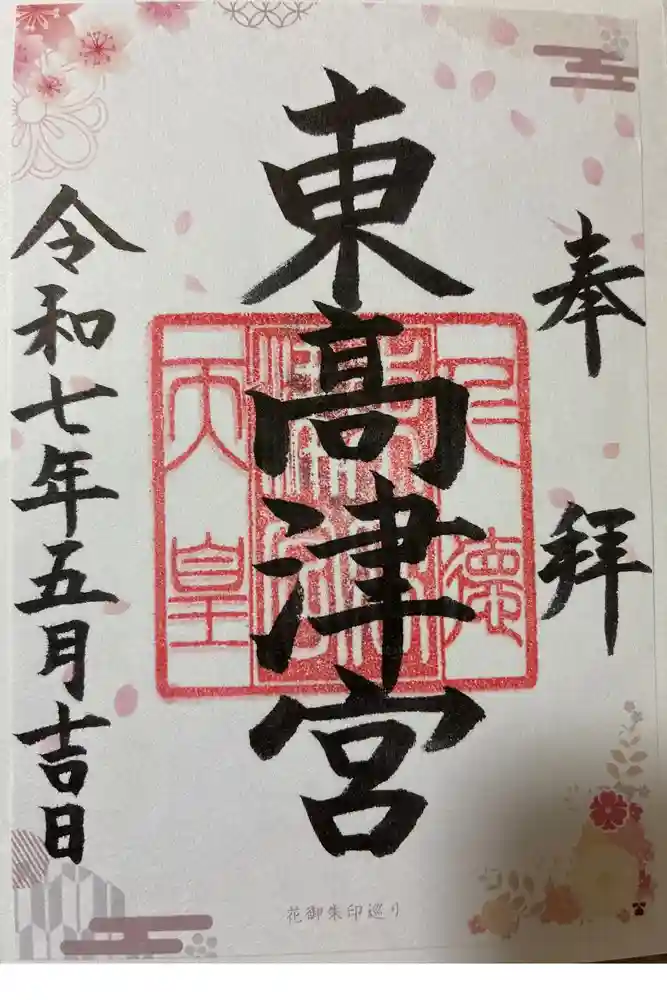 奉拝
東髙津宮
仁徳
天皇
令和七年五月吉日
花御朱印巡り